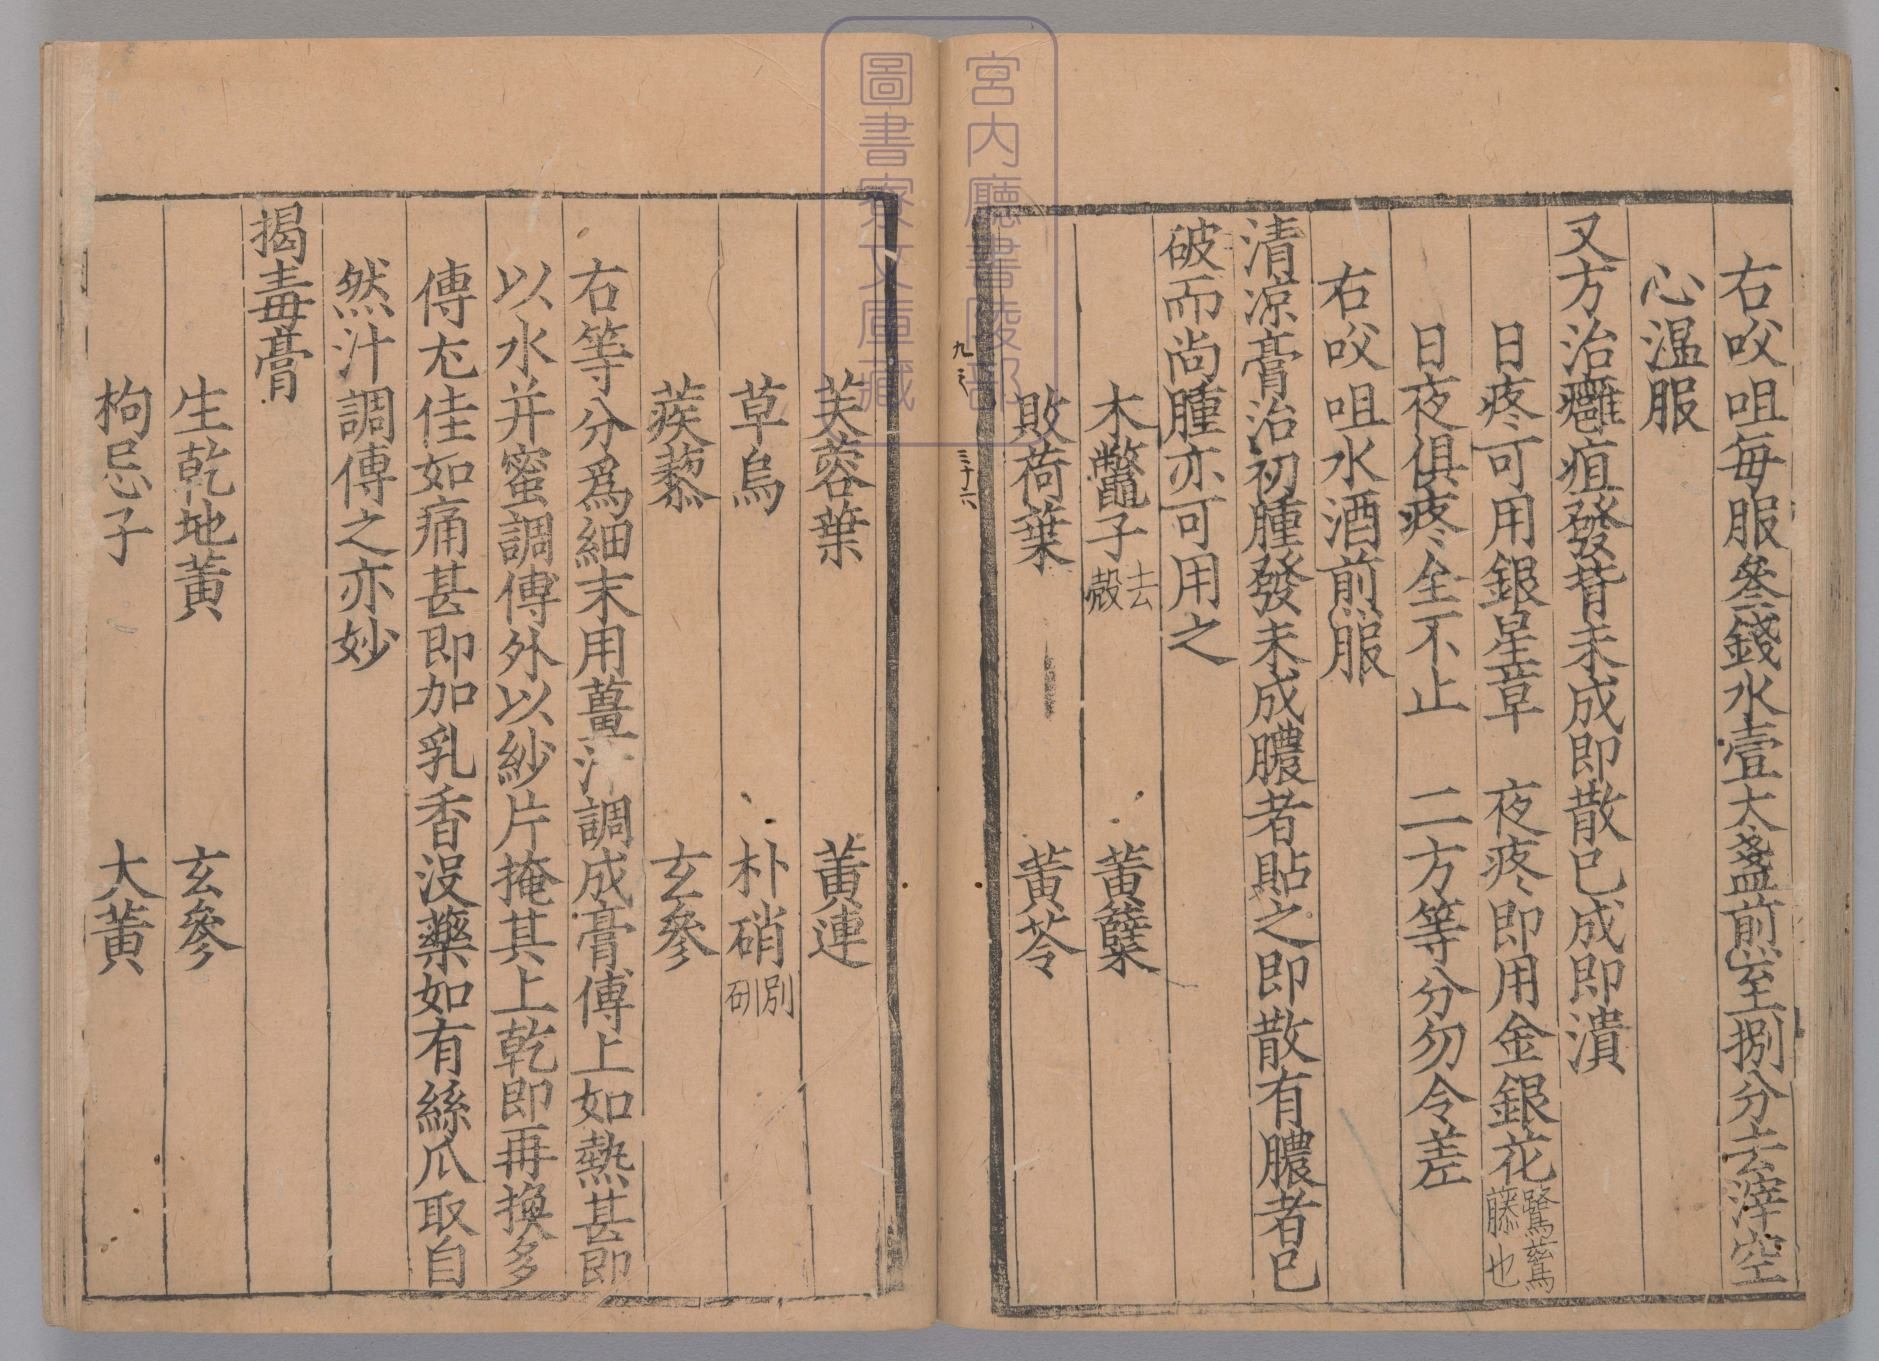 右㕮咀每服叄錢水壹大盞煎至捌分去滓空
心溫服
又方治癰疽發背未成即散已成即潰
日疼可用銀星草　夜疼即用金銀花鷺鷥藤也
日夜俱疼全不止　二方等分勿令差
右㕮咀水酒煎服
清涼膏治初腫發未成膿者貼之即散有膿者已
破而尚腫亦可用之
木鱉子去殼　黃蘗
敗荷葉　黃芩
九之
三十六
芙蓉葉　黃連
草烏　朴硝別研
蒺藜　玄參
右等分爲細末用薑汁調成膏傅上如熱甚即
以水并蜜調傅外以紗片掩其上乾即再換多
傅尤佳如痛甚即加乳香沒藥如有絲瓜取自
然汁調傅之亦妙
揭毒膏
生乾地黃　玄參
枸忌子　大黃
宮内廳書陵部
圖書寮文庫藏